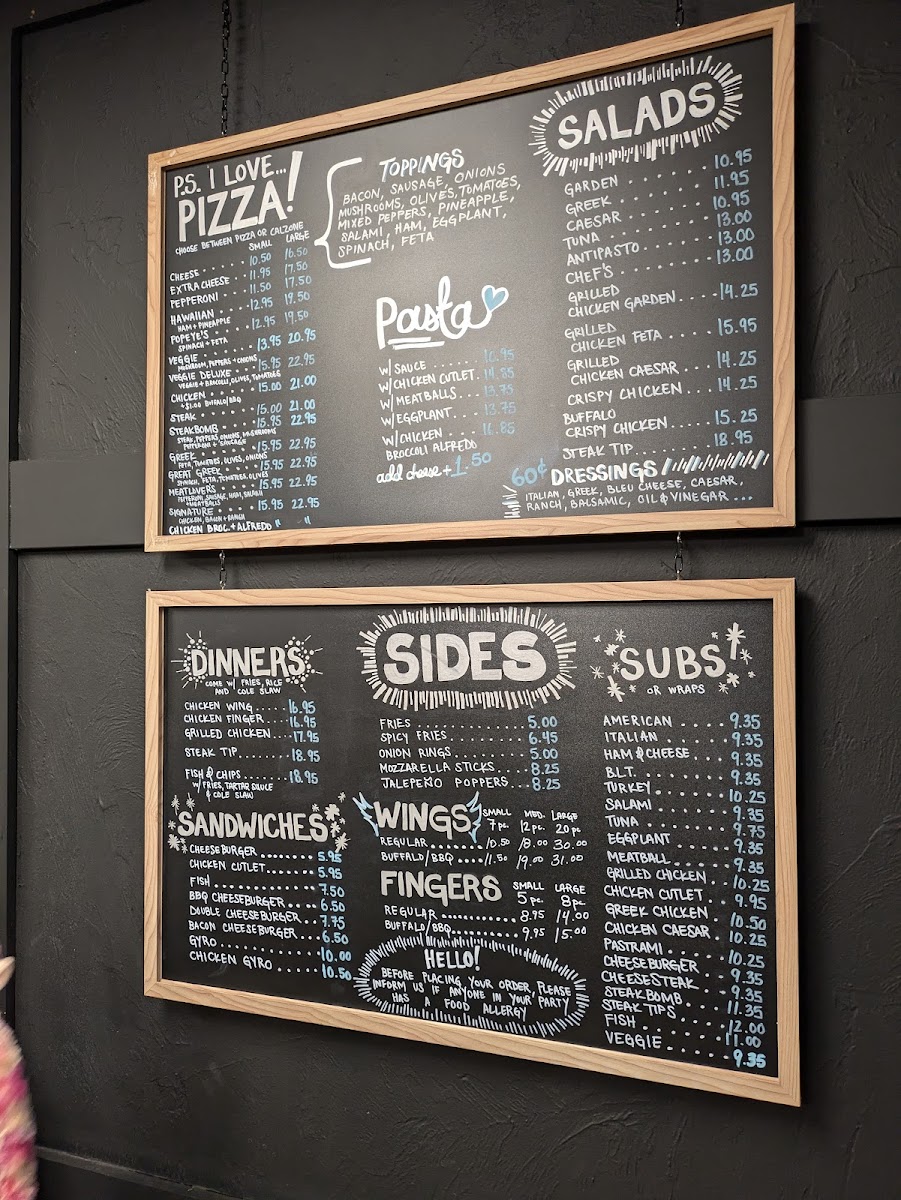 P.S. I LOVE...
PIZZA!
CHOOSE BETWEEN PIZZA OR CALZONE
SMALL LARGE
CHEESE 10.50 16.50
EXTRA CHEESE 11.95 17.50
PEPPERONI 11.50 17.50
HAWAIIAN 12.95 19.50
HAM + PINEAPPLE
POPEYE'S 12.95 19.50
SPINACH + FETA
VEGGIE 13.95 20.95
MUSHROOM, PEPPERS + ONIONS
VEGGIE DELUXE 15.95 22.95
VEGGIE + BROCOLLI, OLIVES, TOMATOES
CHICKEN 15.00 21.00
+$1.00 BUFFALO/BBQ
STEAK 15.00 21.00
STEAKBOMB 15.95 22.95
STEAK, PEPPERS, ONIONS, MUSHROOMS
PEPPERONI + SAUSAGE
GREEK 15.95 22.95
FETA, TOMATOES, OLIVES, ONIONS
GREAT GREEK 15.95 22.95
SPINACH, FETA, TOMATOES, OLIVES
MEATLOVERS 15.95 22.95
PEPPERONI, SAUSAGE, HAM, SALAMI
+ MEATBALLS
SIGNATURE 15.95 22.95
CHICKEN, BACON + RANCH
CHICKEN BROC. + ALFREDO " "
TOPPINGS
BACON, SAUSAGE, ONIONS
MUSHROOMS, OLIVES, TOMATOES,
MIXED PEPPERS, PINEAPPLE,
SALAMI, HAM, EGGPLANT,
SPINACH, FETA
Pasta
W/ SAUCE 10.95
W/ CHICKEN CUTLET 14.55
W/ MEATBALLS 13.75
W/ EGGPLANT 13.75
W/ CHICKEN 16.85
BROCCOLI ALFREDO
add cheese + 1.50
SALADS
GARDEN 10.95
GREEK 11.95
CAESAR 10.95
TUNA 13.00
ANTIPASTO 13.00
CHEF'S 13.00
GRILLED
CHICKEN GARDEN 14.25
GRILLED
CHICKEN FETA 15.95
GRILLED
CHICKEN CAESAR 14.25
CRISPY CHICKEN 14.25
BUFFALO
CRISPY CHICKEN 15.25
STEAK TIP 18.95
60¢ DRESSINGS
ITALIAN, GREEK, BLEU CHEESE, CAESAR,
RANCH, BALSAMIC, OIL & VINEGAR ...
DINNERS
COME W/ FRIES, RICE
AND COLE SLAW
CHICKEN WING 16.95
CHICKEN FINGER 16.95
GRILLED CHICKEN 17.95
STEAK TIP 18.95
FISH & CHIPS 18.95
W/ FRIES, TARTAR SAUCE
& COLE SLAW
SANDWICHES
CHEESEBURGER 5.95
CHICKEN CUTLET 5.95
FISH 7.50
BBQ CHEESEBURGER 6.50
DOUBLE CHEESEBURGER 7.75
BACON CHEESEBURGER 6.50
GYRO 10.00
CHICKEN GYRO 10.50
SIDES
FRIES 5.00
SPICY FRIES 6.45
ONION RINGS 5.00
MOZZARELLA STICKS 8.25
JALEPEÑO POPPERS 8.25
WINGS SMALL MED. LARGE
7 pc. 12 pc. 20 pc
REGULAR 10.50 18.00 30.00
BUFFALO/BBQ 11.50 19.00 31.00
FINGERS SMALL LARGE
5 pc 8 pc
REGULAR 8.95 14.00
BUFFALO/BBQ 9.95 15.00
HELLO!
BEFORE PLACING YOUR ORDER, PLEASE
INFORM US IF ANYONE IN YOUR PARTY
HAS A FOOD ALLERGY
SUBS!
OR WRAPS
AMERICAN 9.35
ITALIAN 9.35
HAM & CHEESE 9.35
B.L.T. 9.35
TURKEY 10.25
SALAMI 9.35
TUNA 9.75
EGGPLANT 9.35
MEATBALL 9.35
GRILLED CHICKEN 10.25
CHICKEN CUTLET 9.95
GREEK CHICKEN 10.50
CHICKEN CAESAR 10.25
PASTRAMI 10.25
CHEESEBURGER 9.35
CHEESESTEAK 9.35
STEAKBOMB 11.35
STEAK TIPS 12.00
FISH 11.00
VEGGIE 9.35